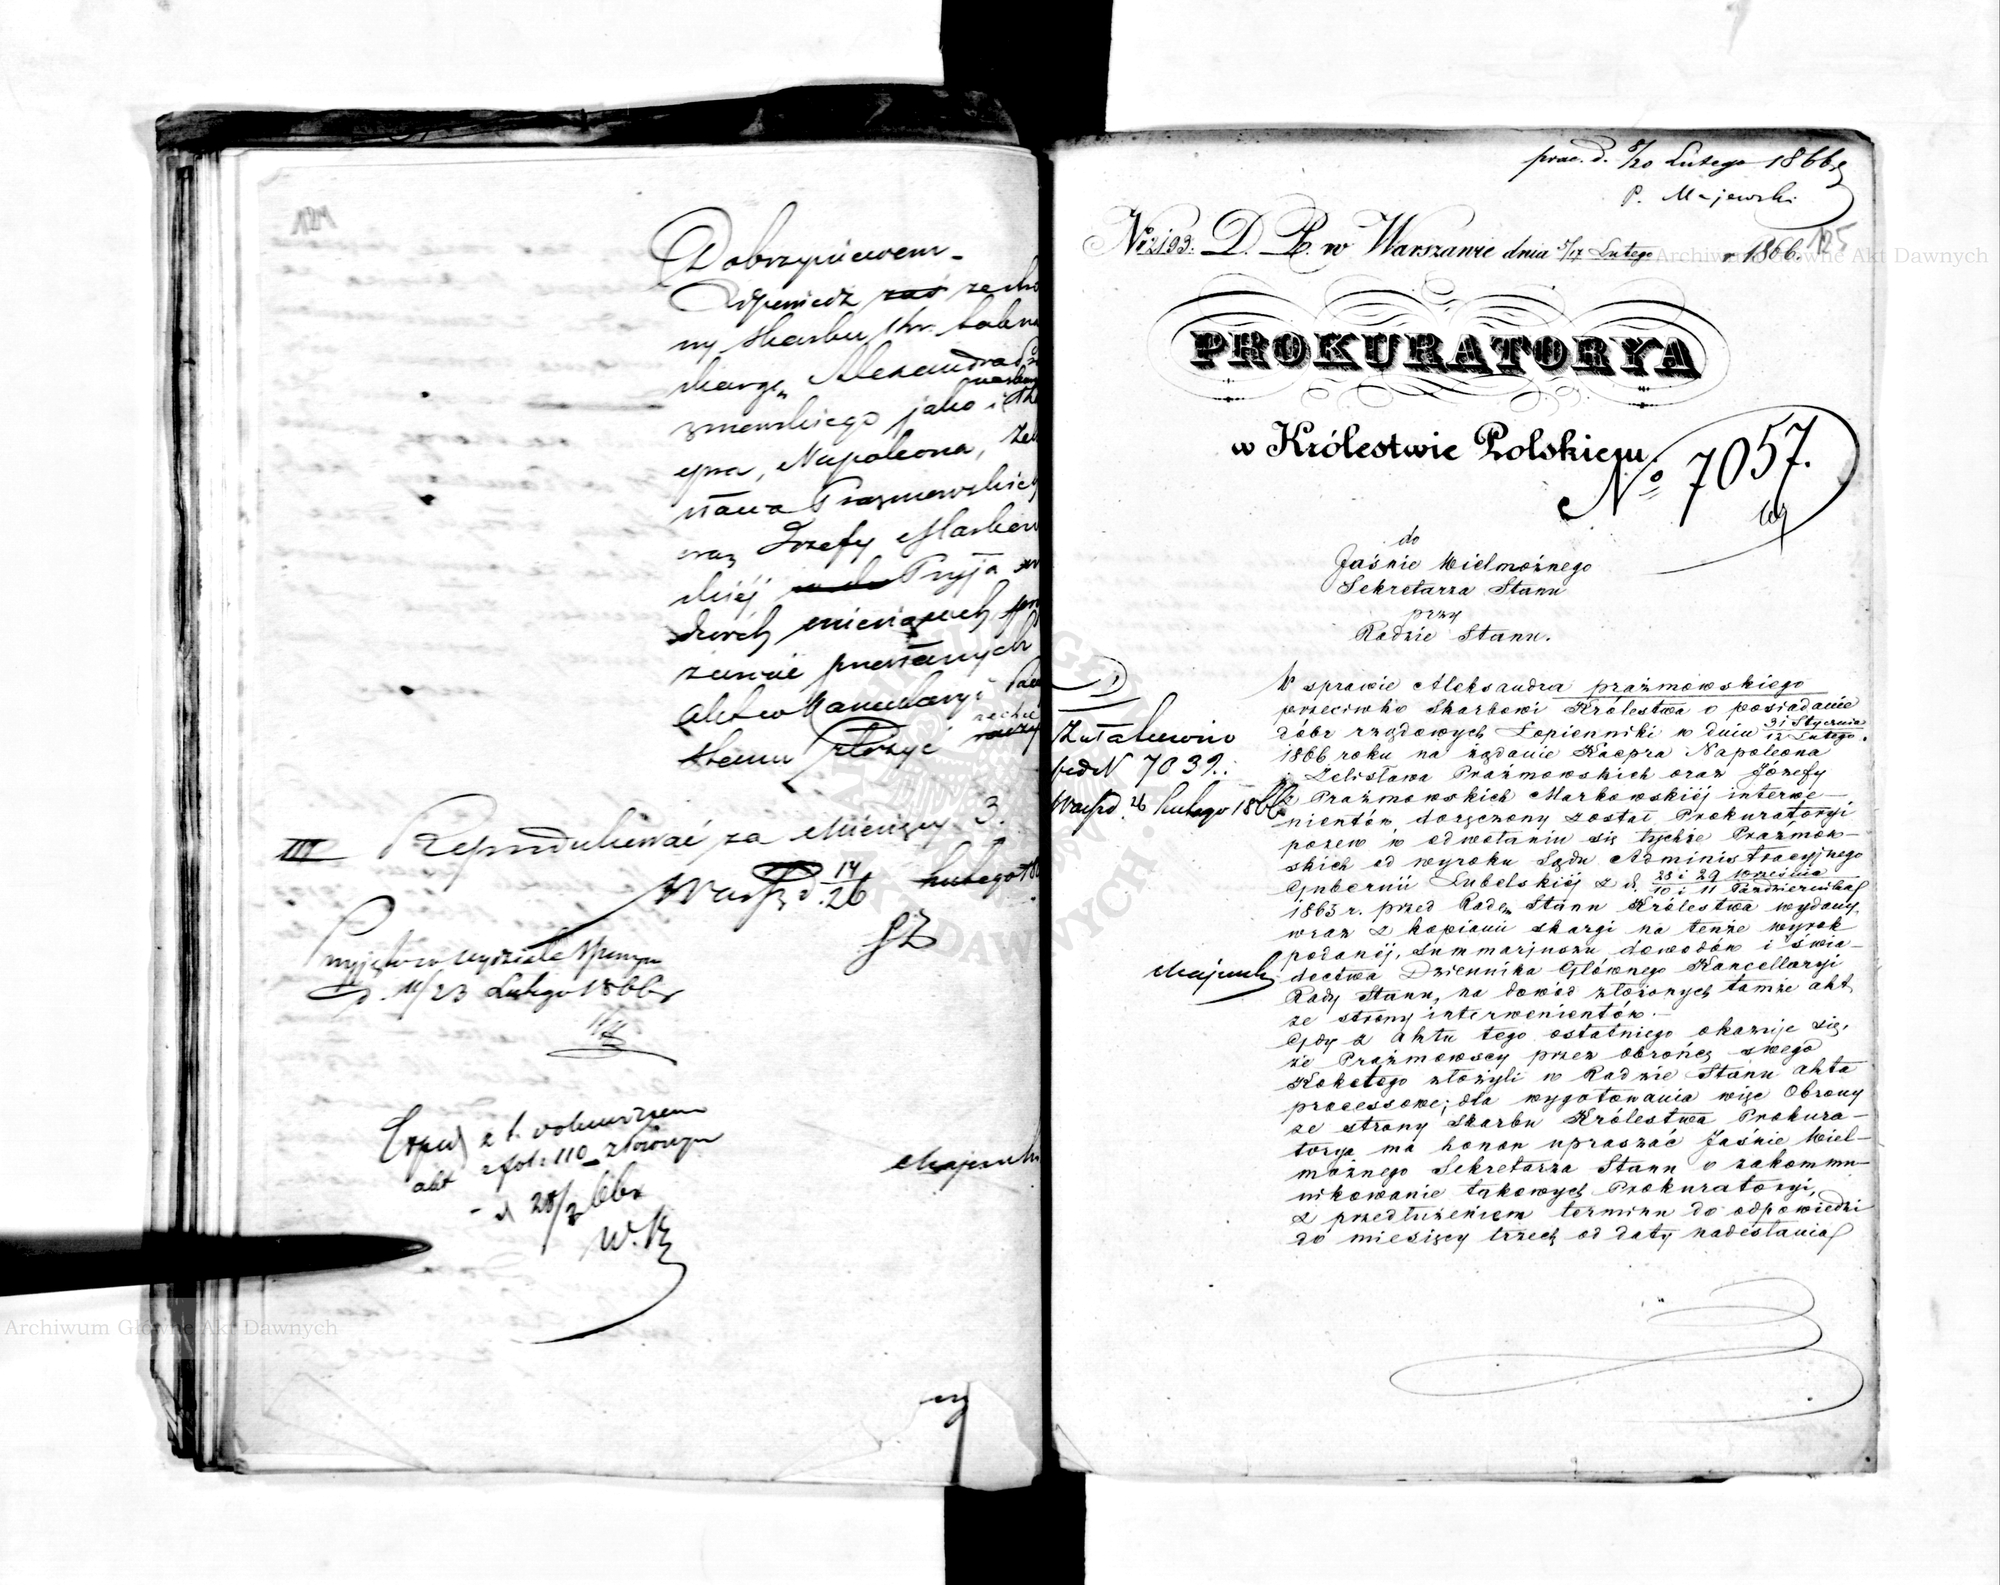 124
Dobrzyniewem
Odpowiedź zaś zecho
ny Skarbu Kr.
skargę Alexandra Pra
zmowskiego jako i
cpra, Napoleona, Zeli
sława Prazmowskich
oraz Józefy Markow
skiéj
dwóch miesiącach
przesłanych
aktów Kancelaryi
Stanu złożyć
raczy
III Reprodukować za Miesięcy 3.
Warsz. d. 14/26 Lutego
Przyjęto w Wydziale
d. 11/23 Lutego 1866 r
z 1. voluminem
akt z fol: 110 złożonym
d 28/3 66 r
W. K.
Majewski
prac. d. 8/20 Lutego 1866 r
P. Majewski
125
No 2193. D. P. w Warszawie dnia 5/17 Lutego r 1866.
PROKURATORYA
w Królestwie Polskiem
No 7057.
do
Jaśnie Wielmożnego
Sekretarza Stanu
przy
Radzie Stanu.
Załatwiono
pod N 7039.
Warsz d. 26 Lutego 1866
Majewski
W sprawie Aleksandra Prażmowskiego
przeciwko Skarbowi Królestwa o posiadanie
dóbr rządowych Łopienniki w dniu 31 Stycznia / 12 Lutego
1866 roku na żądanie Kacpra Napoleona
i Zelisława Prażmowskich oraz Józefy
z Prażmowskich Markowskiéj interwe-
nientów doręczony został Prokuratoryi
pozew w odwołaniu się tychże Prażmow-
skich od wyroku Sądu Administracyjnego
Gubernii Lubelskiéj z d. 28 i 29 Września / 10 i 11 Października
1863 r. przed Radę Stanu Królestwa wydany,
wraz z kopiami skargi na tenże wyrok
podanéj, summarjuszu dowodów i świa-
dectwa Dziennika Głównego Kancellaryi
Rady Stanu, na dowód złożonych tamże akt
ze strony interwenientów.
Gdy z aktu tego ostatniego okazuje się,
że Prażmowscy przez obrońcę swego
Kokelego złożyli w Radzie Stanu akta
processowe; dla wygotowania więc Obrony
ze strony Skarbu Królestwa Prokura-
torya ma honor upraszać Jaśnie Wiel-
możnego Sekretarza Stanu o zakommu-
nikowanie takowych Prokuratoryi,
z przedłużeniem terminu do odpowiedzi
do miesięcy trzech od daty nadesłania
Archiwum Główne Akt Dawnych
Archiwum Główne Akt Dawnych